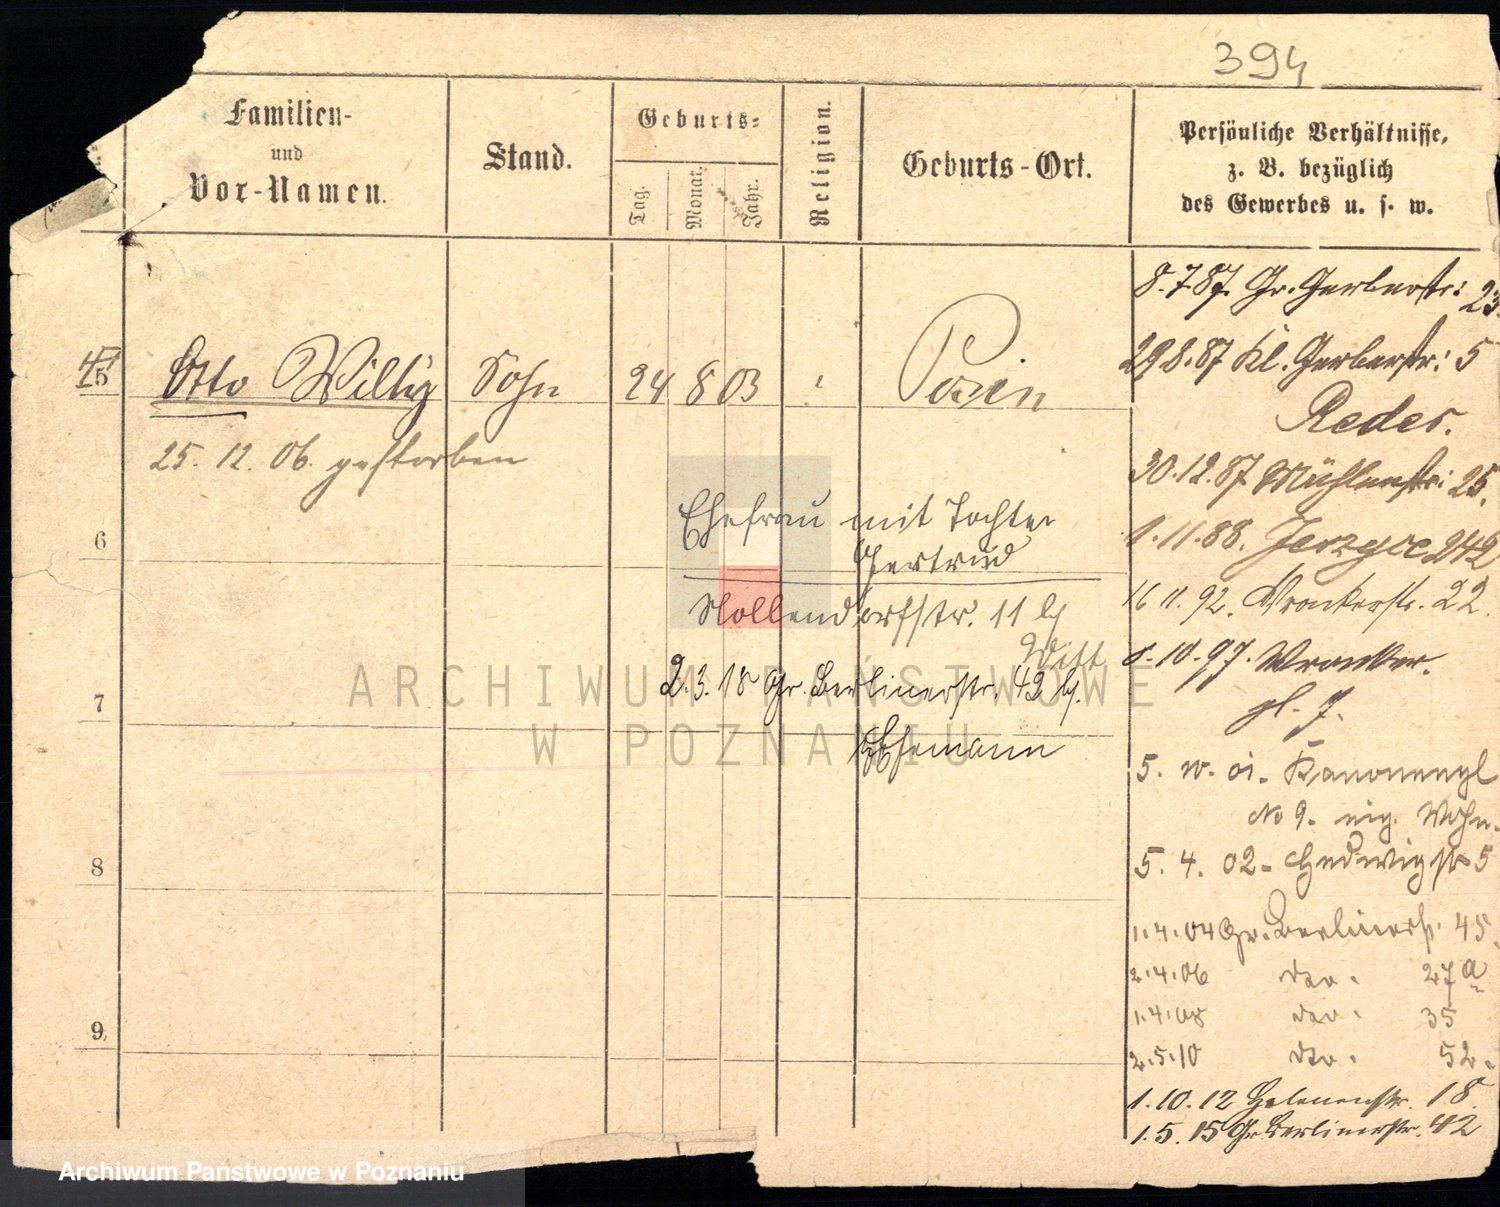 394
Familien-
und
Vor-Namen.
Stand.
Geburts-
Tag.
Monat.
Jahr.
Religion.
Geburts-Ort.
Persönliche Verhältnisse,
z. B. bezüglich
des Gewerbes u. s. w.
5 Otto Willy Sohn 24 8 03 Posen
25. 12. 06. gestorben
6
7
8
9
Ehefrau mit Tochter
Gertrud
Nollendorfstr. 11 b/
Witt
2.3.18 Gr. Berlinerstr. 42 b/.
Ehemann
8.7.87. Gr. Gerberstr: 23
29.8.87 Kl. Gerberstr: 5
Redes.
30.12.87 Mühlenstr: 25.
1.11.88. Jerzyce 242
16 11. 92. Wronkerstr. 22.
8.10.97. Wronker.
pl. 7.
5. 10. 01. Kanonenpl
No 9. eig. Wohn.
5. 4. 02. Hedwigstr 5
1.4.04 Gr. Berlinerstr. 45.
2.4.06 dto. 27a
1.4.08 dto. 35
2.5.10 dto. 52.
1.10.12 Helenenstr. 18.
1.5.15 Gr. Berlinerstr. 42
ARCHIWUM PAŃSTWOWE
W POZNANIU
Archiwum Państwowe w Poznaniu